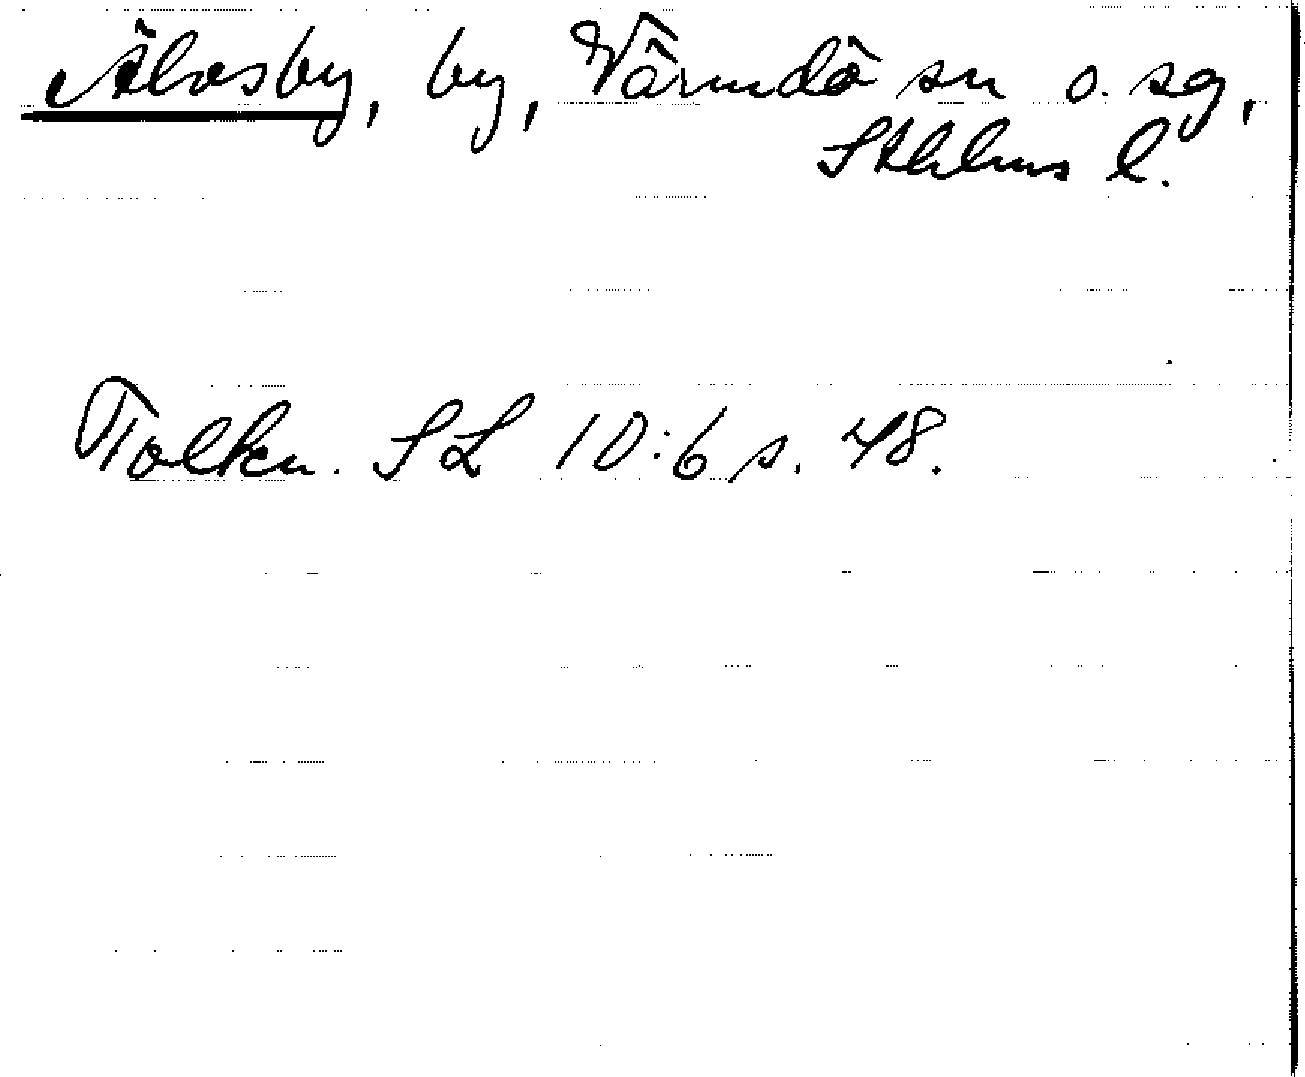 Älvsby, by, Värmdö sn o. sg,
Sthlms l.
Tolkn. SL 10:6 s. 48.